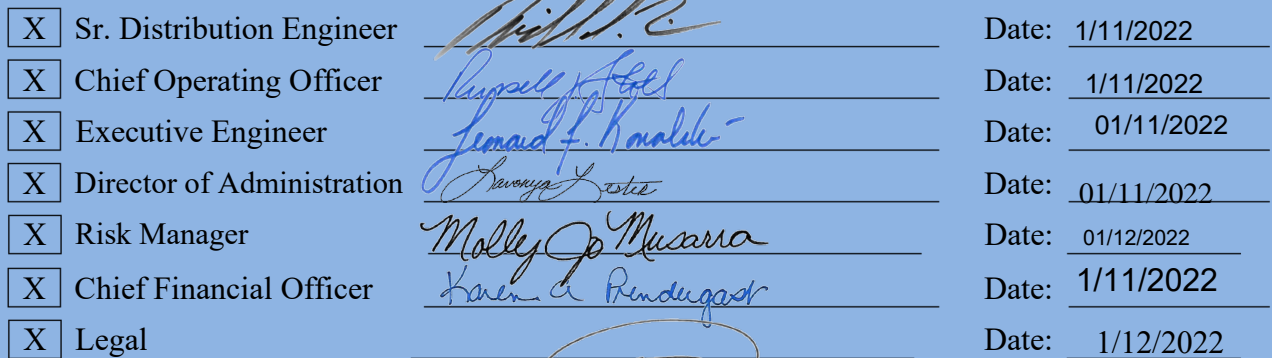 X Sr. Distribution Engineer Date: 1/11/2022
X Chief Operating Officer Russell Date: 1/11/2022
X Executive Engineer Leonard F. Date: 01/11/2022
X Director of Administration Lavonya Lester Date: 01/11/2022
X Risk Manager Molly Jo Musarra Date: 01/12/2022
X Chief Financial Officer Karen A Prendergast Date: 1/11/2022
X Legal Date: 1/12/2022